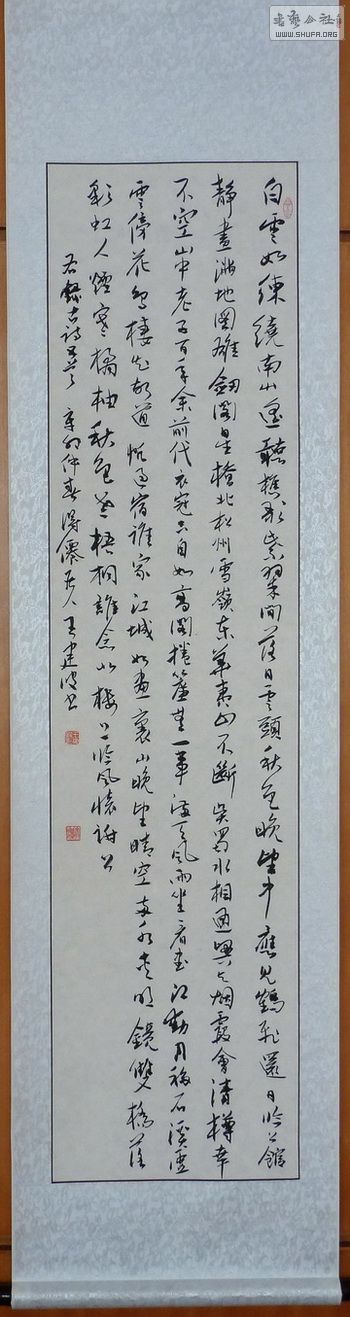 白雲如練繞南山遙聽樵歌紫翠間落日雲頭秋色晚望中應見鶴飛還日臨公館
靜畫滿地圖雄劍閣星橋北松州雪嶺東華夷山不斷吳蜀水相通興與烟霞會清樽幸
不空山中老五百年余前代衣冠自如高閣捲簾望一華滿天風雨坐看書江動月移石溪虛
雲傍花鳥棲知故道帆過宿誰家江城如畫裏山晚望晴空兩水夾明鏡雙橋落
彩虹人煙寒橘柚秋色老梧桐誰念北樓上臨風懷謝公
右錄古詩五首辛卯仲春得僊居人王建波書
WWW.SHUFA.ORG